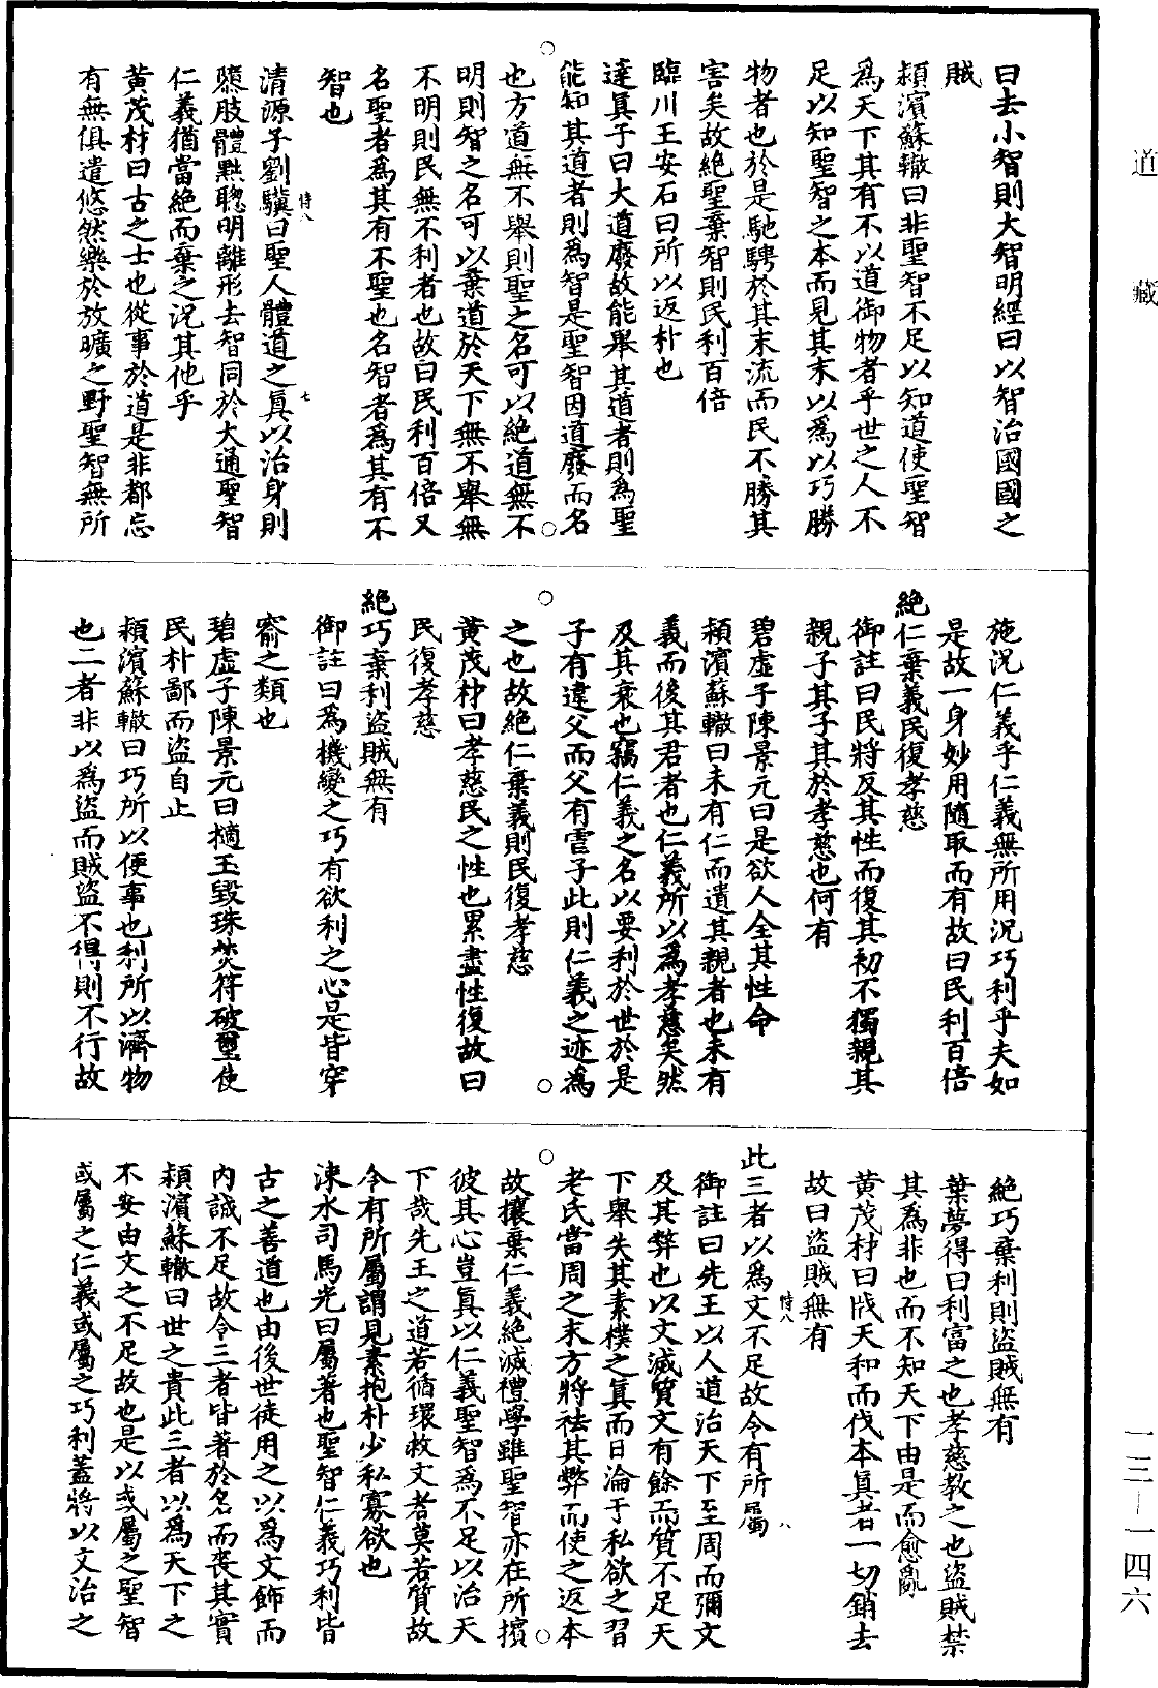 道藏
曰去小智則大智明經曰以智治國國之
賊
頴濱蘇轍曰非聖智不足以知道使聖智
為天下其有不以道御物者乎世之人不
足以知聖智之本而見其末以為以巧勝
物者也於是馳騁於其末流而民不勝其
害矣故絕聖棄智則民利百倍
臨川王安石曰所以返朴也
達真子曰大道廢故能舉其道者則為聖
能知其道者則為智是聖智因道廢而名
也方道無不舉則聖之名可以絕道無不
明則智之名可以棄道於天下無不舉無
不明則民無不利者也故曰民利百倍又
名聖者為其有不聖也名智者為其有不
智也
清源子劉驥曰聖人體道之真以治身則
隳肢體黜聰明離形去智同於大通聖智
仁義猶當絕而棄之況其他乎
黃茂材曰古之士也從事於道是非都忘
有無俱遣悠然樂於放曠之野聖智無所
特八 七
施況仁義乎仁義無所用況巧利乎夫如
是故一身妙用隨取而有故曰民利百倍
絕仁棄義民復孝慈
御註曰民將反其性而復其初不獨親其
親子其子其於孝慈也何有
碧虛子陳景元曰是欲人全其性命
頴濱蘇轍曰未有仁而遺其親者也未有
義而後其君者也仁義所以為孝慈矣然
及其衰也竊仁義之名以要利於世於是
子有違父而父有虐子此則仁義之迹為
之也故絕仁棄義則民復孝慈
黃茂材曰孝慈民之性也累盡性復故曰
民復孝慈
絕巧棄利盜賊無有
御註曰為機變之巧有欲利之心是皆穿
窬之類也
碧虛子陳景元曰擿玉毀珠焚符破璽使
民朴鄙而盜自止
頴濱蘇轍曰巧所以便事也利所以濟物
也二者非以為盜而賊盜不得則不行故
絕巧棄利則盜賊無有
葉夢得曰利富之也孝慈教之也盜賊禁
其為非也而不知天下由是而愈亂
黃茂材曰戕天和而伐本真者一切銷去
故曰盜賊無有
此三者以為文不足故令有所屬
特八 八
御註曰先王以人道治天下至周而彌文
及其弊也以文滅質文有餘而質不足天
下舉失其素樸之真而日淪于私欲之習
老氏當周之末方將祛其弊而使之返本
故攘棄仁義絕滅禮學雖聖智亦在所擯
彼其心豈真以仁義聖智為不足以治天
下哉先王之道若循環救文者莫若質故
令有所屬謂見素抱朴少私寡欲也
涑水司馬光曰屬著也聖智仁義巧利皆
古之善道也由後世徒用之以為文飾而
內誠不足故令三者皆著於名而喪其實
頴濱蘇轍曰世之貴此三者以為天下之
不安由文之不足故也是以或屬之聖智
或屬之仁義或屬之巧利蓋將以文治之
一三—一四六